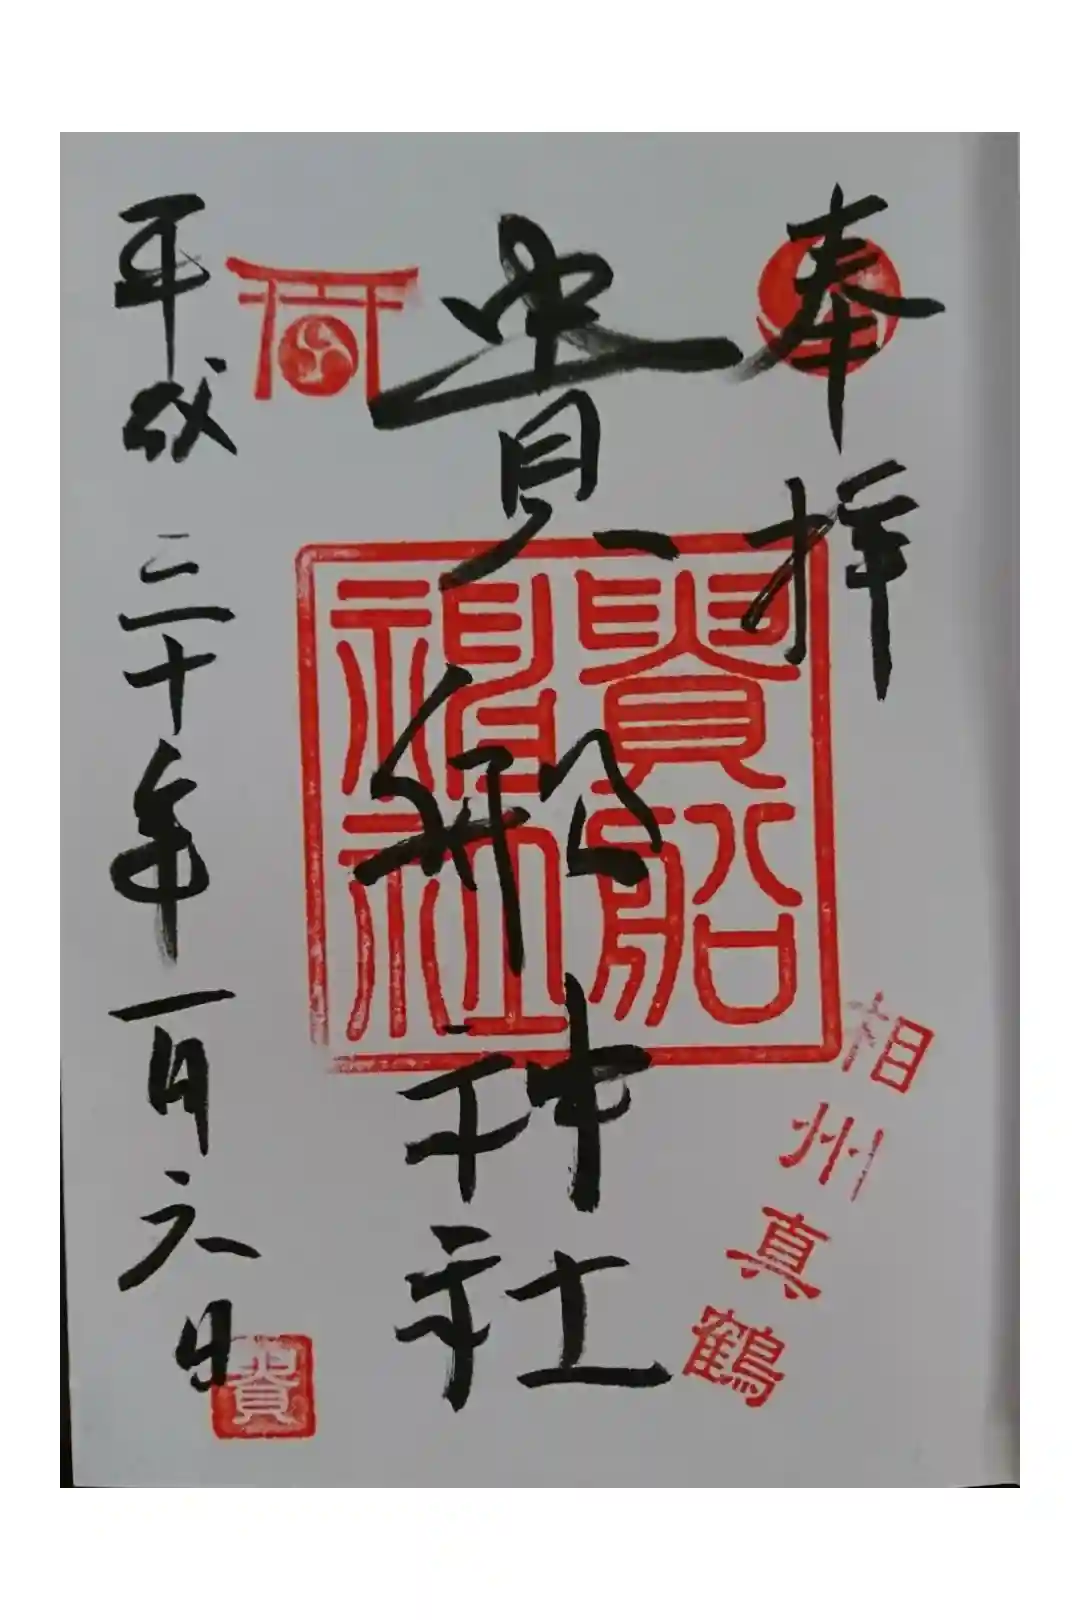 奉拝
相州真鶴
貴船神社
貴船神社
平成三十年一月六日
貴